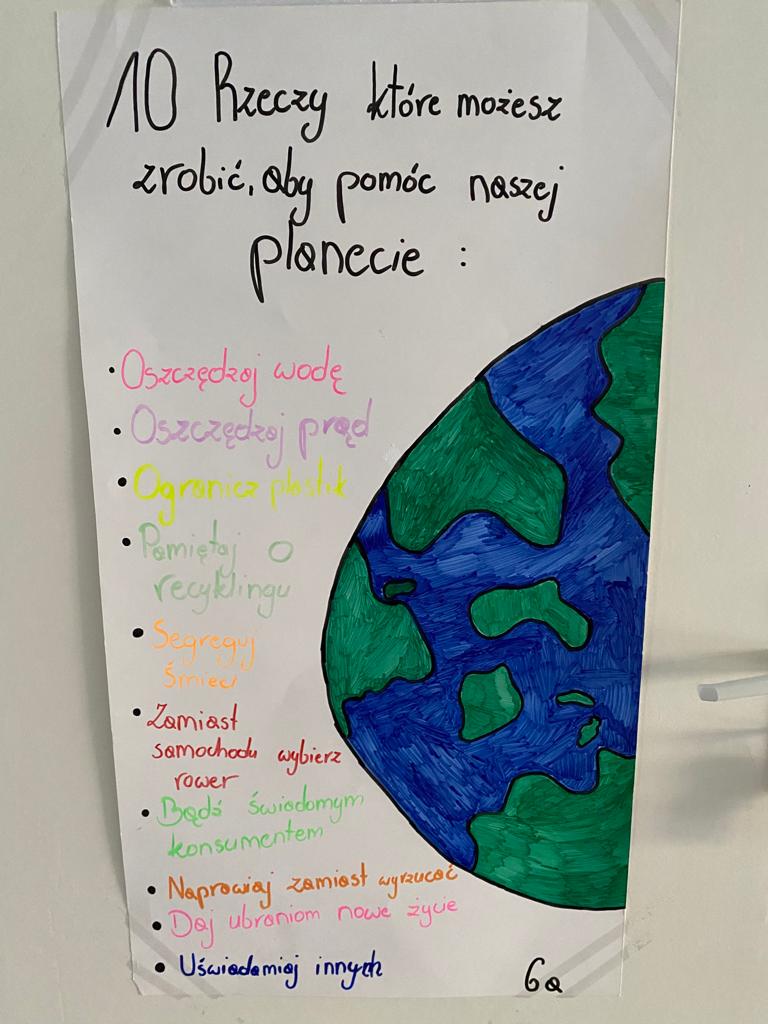 10 Rzeczy które możesz
zrobić, aby pomóc naszej
planecie :
• Oszczędzaj wodę
• Oszczędzaj prąd
• Ogranicz plastik
• Pamiętaj o
recyklingu
• Segreguj
śmieci
• Zamiast
samochodu wybierz
rower
• Bądź świadomym
konsumentem
• Naprawiaj zamiast wyrzucać
• Daj ubraniom nowe życie
• Uświadamiaj innych
6a